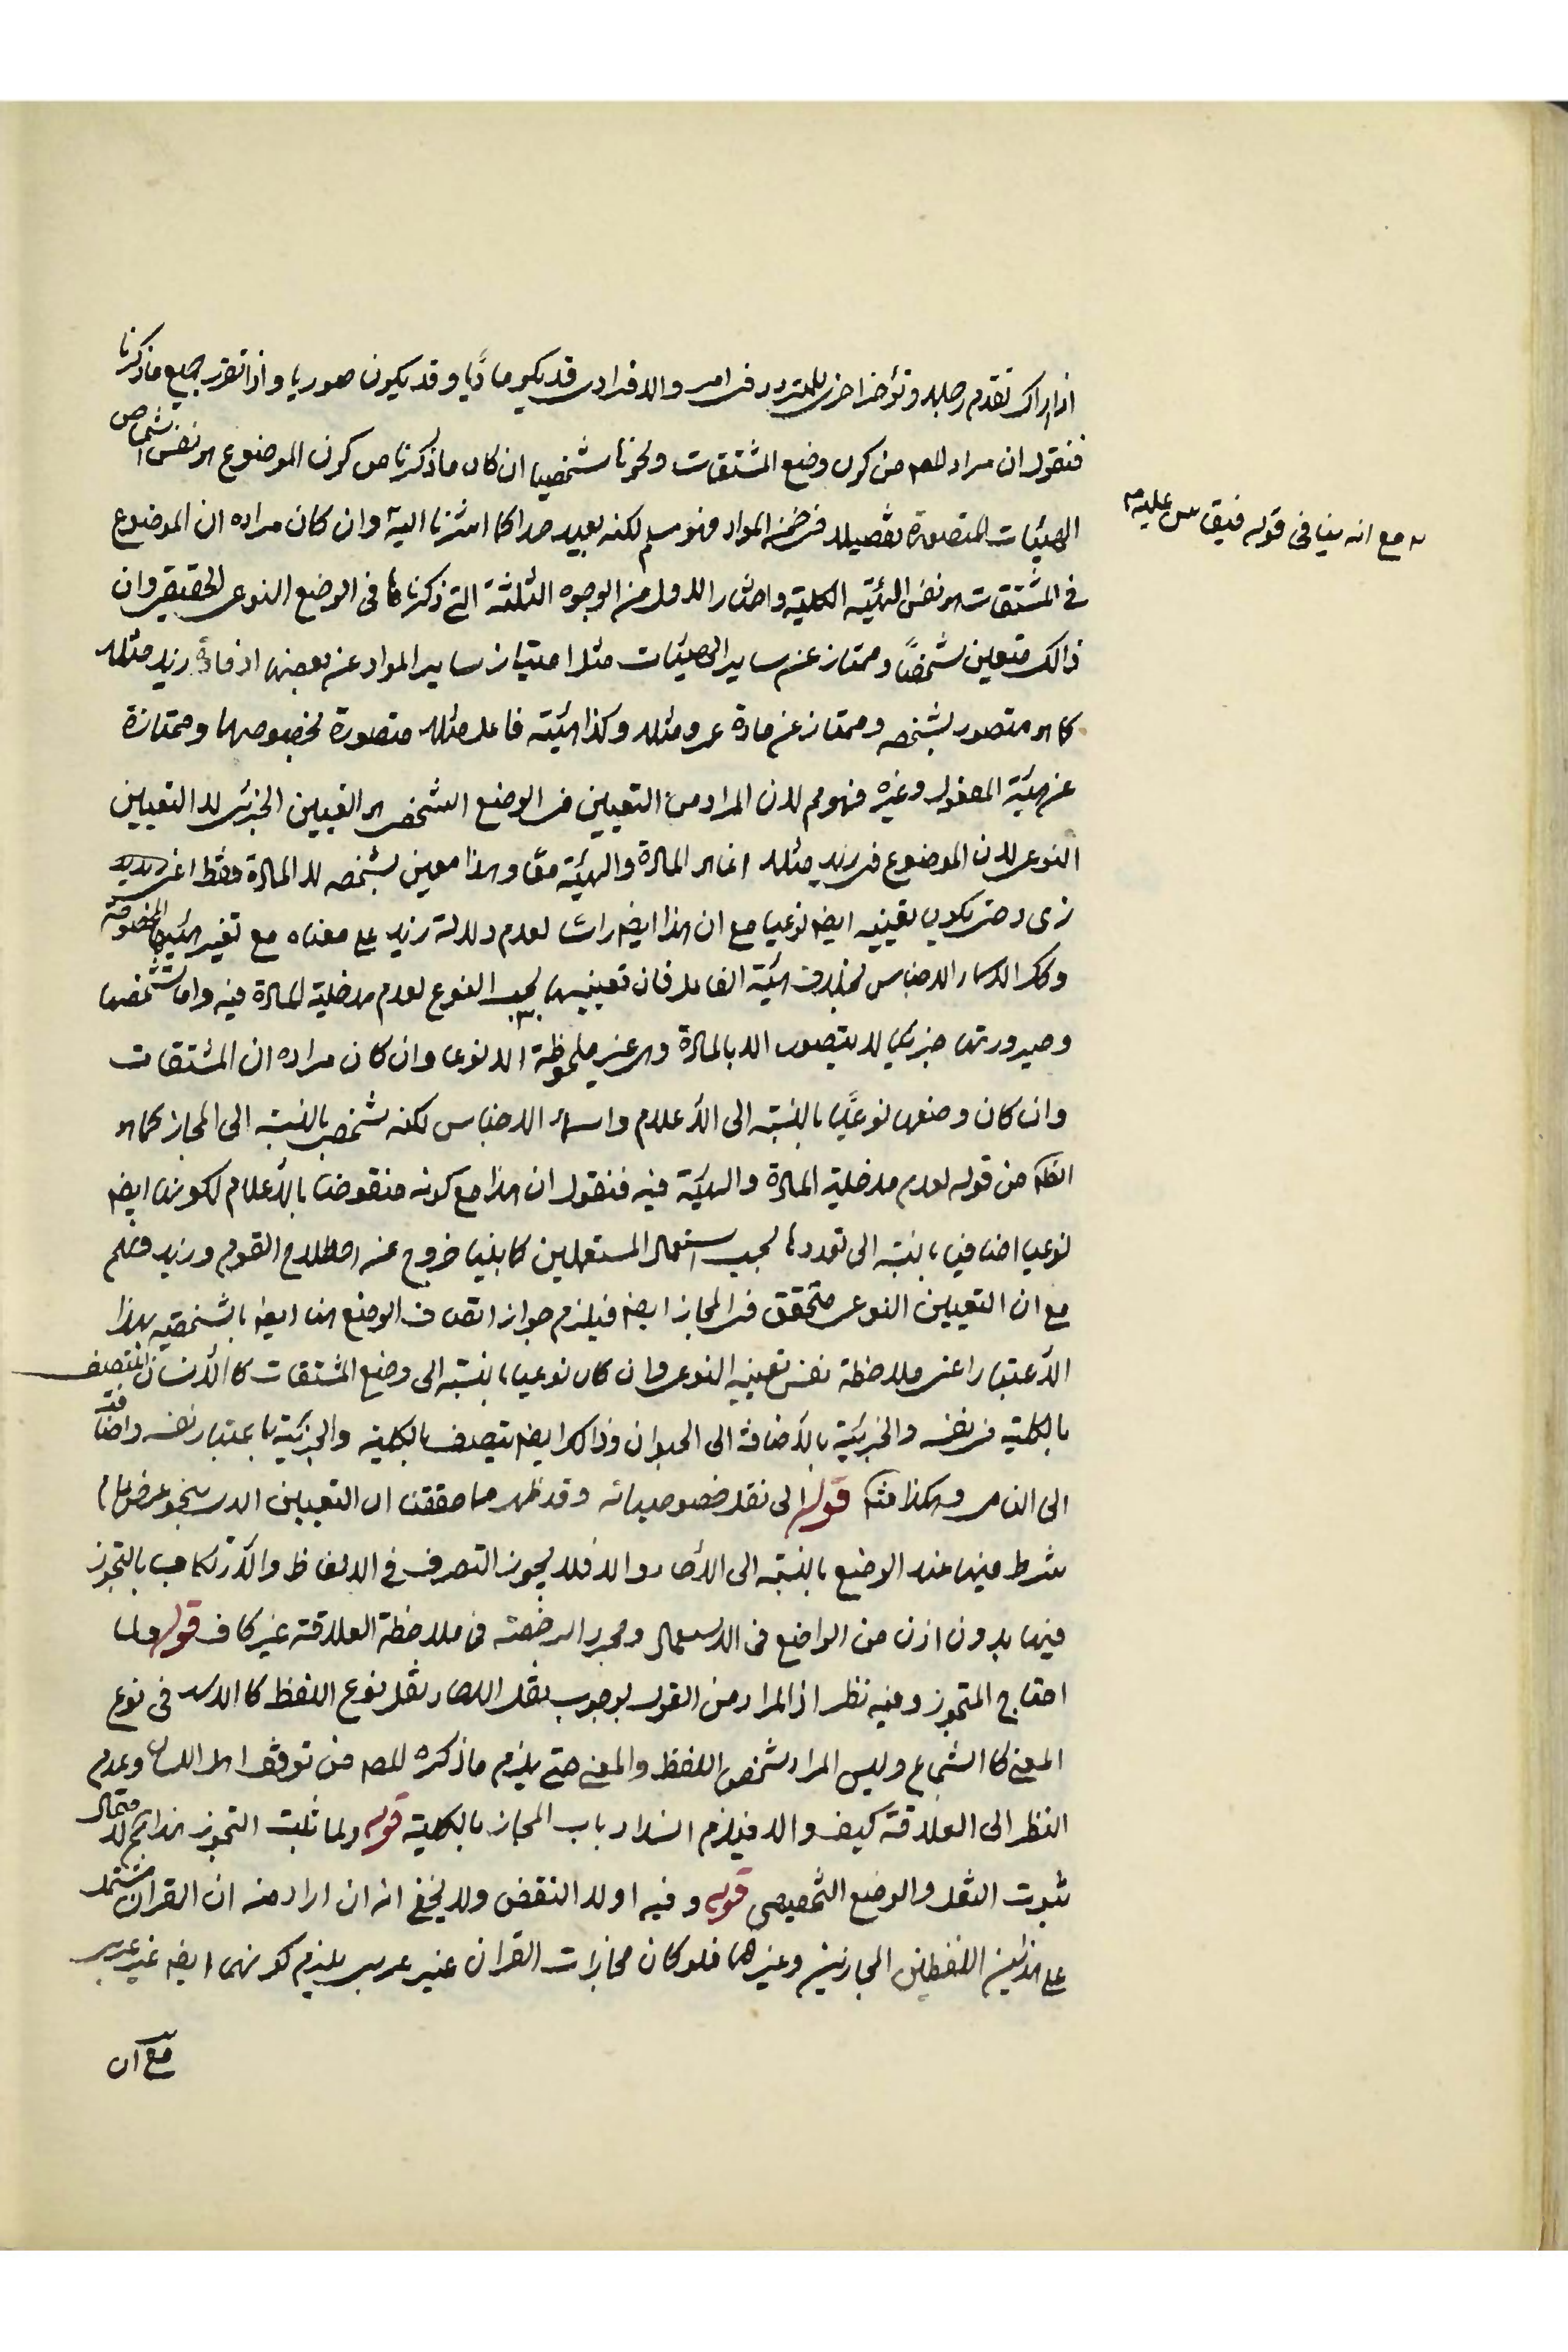 اذا اراك تقدم رجله وتؤخر اخرى للمتردد فى امر والافرادى قد يكون ماديا وقد يكون صوريا واذا تقرر جميع ما ذكرنا
فنقول ان مراد المص من كون وضع المشتقات ونحوها شخصيا ان كان ما ذكرنا من كون الموضوع هو نفس اشخاص
الهيئات المتصورة تفصيلا فى ضمن المواد فهو مسلم لكنه بعيد جدا كما اشرنا اليه وان كان مراده ان الموضوع
مع انه ينافى قوله فيقاس عليه
فى المشتقات هو نفس الهيئة الكلية واختار الاول من الوجوه الثلثة التى ذكرناها فى الوضع النوعى الحقيقى وان
ذالك متعين شخصًا وممتاز عن ساير الهيئات مثل امتياز ساير المواد عن بعضها اذ مادة زيد مثلا
كما هو متصور بشخصه وممتاز عن مادة عمرو مثلا وكذا هيئة فاعل مثلا متصورة بخصوصها وممتازة
عن هيئة المفعول وغيره فهو مم لان المراد من التعيين فى الوضع الشخصى هو التعيين الجزئى لا التعيين
النوعى لان الموضوع فى زيد مثلا انما هو المادة والهيئة معًا وهذا معين بشخصه لا المادة فقط اعنى
زى د حتى يكون تعيينه ايض نوعيا مع ان هذا ايض لعدم دلالة زيد على معناه مع تغير هيئته المخصوصة
وكك الاسماء الاجناس بخلاف هيئة الفاعل فان تعيينها بحسب النوع لعدم مدخلية المادة فيه واما تشخصها
وصيرورتها جزئيا لا يتصور الا بالمادة وهى غير ملحوظة الا نوعا وان كان مراده ان المشتقات
وان كان وضعها نوعيًا بالنسبة الى الاعلام واسماء الاجناس لكنه شخصى بالنسبة الى المجاز كما هو
الظ من قوله لعدم مدخلية المادة والهيئة فيه فنقول ان هذا مع كونه منقوضا بالاعلام لكونها ايض
نوعيا اضافيا بالنسبة الى تعددها بحسب استعمال المستعملين كما بينا خروج عن اصطلاح القوم
مع ان التعيين النوعى متحقق فى المجاز ايض فيلزم جواز اتصاف الوضع هنا ايض بالشخصية بهذا
الاعتبار اعنى ملاحظة نفس تعيينه النوعى وان كان نوعيا بالنسبة الى وضع المشتقات كالانسان المتصف
بالكلية فى نفسه والجزئية بالاضافة الى الحيوان وذالك ايض يتصف بالكلية والجزئية باعتبار نفسه واضافته
الى النامى وهكذا قوله الى نقل خصوصياته وقد ظهر مما حققنا ان التعيين ولو بنحو عرض عام
شرط فيها عند الوضع بالنسبة الى الآحاد والا فلا يجوز التصرف فى الالفاظ والارتكاب بالتجوز
فيها بدون اذن من الواضع فى الاستعمال ومجرد الرخصة فى ملاحظة العلاقة غير كاف قوله ولما
احتاج المتجوز وفيه نظر اذ المراد من القول بوجوب نقل الآحاد نقل نوع اللفظ كالاسد فى نوع
المعنى كالشجاع وليس المراد شخص اللفظ والمعنى حتى يلزم ما ذكره المص من توقف اهل اللسان وعدم
النظر الى العلاقة كيف والا فيلزم انسداد باب المجاز بالكلية قوله ولما ثبت التجوز هذا مم لاحتمال
ثبوت النقل والوضع التخصيصى قوله وفيه اولا النقض ولا يخفى انه ان اراد منه ان القرآن مشتمل
على هذين اللفظين المجازيين وغيرهما فلو كان مجازات القرآن غير عربى يلزم كونهما ايض غير عربى
مع ان